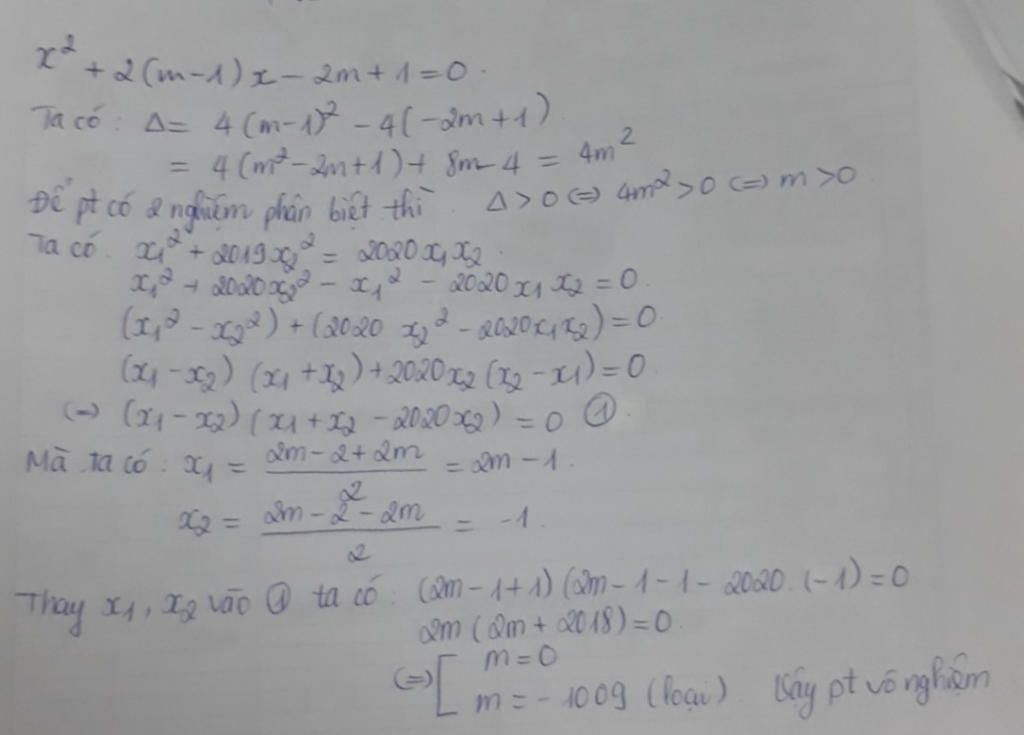 x² + 2(m-1)x - 2m + 1 = 0.
Ta có: Δ = 4(m-1)² - 4(-2m+1)
= 4(m² - 2m + 1) + 8m - 4 = 4m²
Để pt có 2 nghiệm phân biệt thì Δ > 0 (=) 4m² > 0 (=) m > 0
Ta có. x₁² + 2019x₂² = 2020x₁x₂.
x₁² + 2020x₂² - x₁² - 2020x₁x₂ = 0.
(x₁² - x₂²) + (2020 x₂² - 2020x₁x₂) = 0
(x₁ - x₂) (x₁ + x₂) + 2020x₂ (x₂ - x₁) = 0
(=) (x₁ - x₂) (x₁ + x₂ - 2020x₂) = 0 ①.
Mà ta có: x₁ = (2m - 2 + 2m)/2 = 2m - 1.
x₂ = (2m - 2 - 2m)/2 = -1.
Thay x₁, x₂ vào ① ta có: (2m - 1 + 1) (2m - 1 - 1 - 2020. (-1) = 0
2m (2m + 2018) = 0.
(=) [ m = 0
m = - 1009 (loại). Vậy pt vô nghiệm